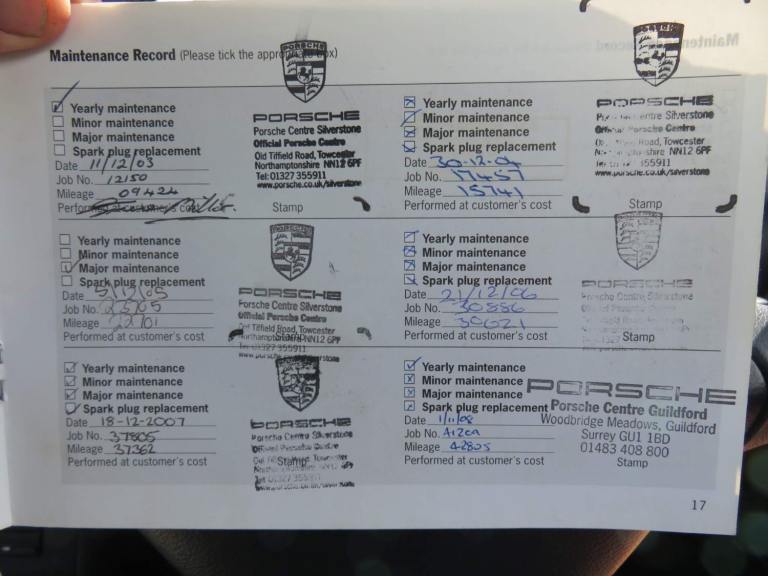 Maintenance Record (Please tick the appro box)
PORSCHE
Yearly maintenance
Minor maintenance
Major maintenance
Spark plug replacement
Date 11/12/03
Job No. 12150
Mileage 09424
Performed at customer's cost
PORSCHE
Porsche Centre Silverstone
Official Porsche Centre
Old Tiffield Road, Towcester
Northamptonshire NN12 6PF
Tel: 01327 355911
www.porsche.co.uk/silverstone
Stamp
Yearly maintenance
Minor maintenance
Major maintenance
Spark plug replacement
Date 30-12-04
Job No. 17457
Mileage 15741
Performed at customer's cost
PORSCHE
Porsche Centre Silverstone
Official Porsche Centre
Road, Towcester
shire NN12 6PF
355911
www.porsche.co.uk/silverstone
Stamp
Yearly maintenance
Minor maintenance
Major maintenance
Spark plug replacement
Date 5/12/05
Job No. 23705
Mileage 22701
Performed at customer's cost
PORSCHE
Porsche Centre Silverstone
Official Porsche Centre
Old Tiffield Road, Towcester
Northamptonshire NN12 6PF
Tel: 01327 355911
Stamp
Yearly maintenance
Minor maintenance
Major maintenance
Spark plug replacement
Date 21/12/06
Job No. 30886
Mileage 30621
Performed at customer's cost
PORSCHE
Porsche Centre Silverstone
Stamp
Yearly maintenance
Minor maintenance
Major maintenance
Spark plug replacement
Date 18-12-2007
Job No. 37805
Mileage 37362
Performed at customer's cost
PORSCHE
Porsche Centre Silverstone
Official Porsche Centre
Tel: 01327 355911
Stamp
Yearly maintenance
Minor maintenance
Major maintenance
Spark plug replacement
Date 1/11/08
Job No.
Mileage 42805
Performed at customer's cost
PORSCHE
Porsche Centre Guildford
Woodbridge Meadows, Guildford
Surrey GU1 1BD
01483 408 800
Stamp
17